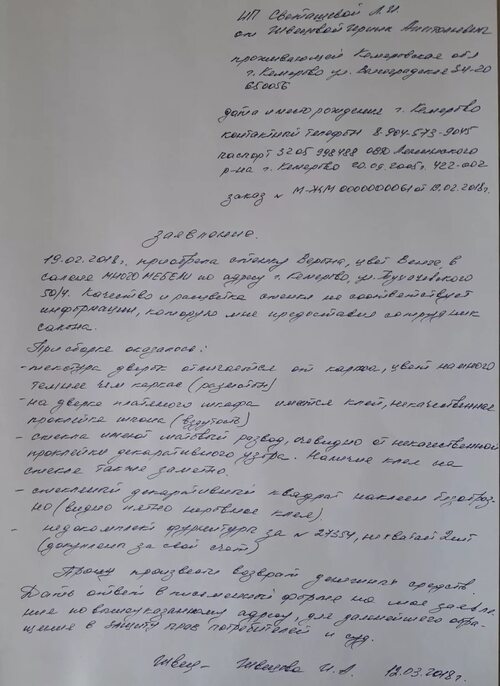 ИП Светашевой Л.И.
от Швецовой Ирины Анатольевны
проживающей Кемеровская обл
г. Кемерово ул. Волгоградская 34-20
650056
дата и место рождения г. Кемерово
контактный телефон 8-904-573-9045
паспорт 3205 998488 ОВД Ленинского
р-на г. Кемерово 20.09.2005г. 422-002
заказ № М-ЖМ 0000000061 от 19.02.2018г.
заявление.
19.02.2018г. приобрела стенку Верона, цвет Венге, в
салоне МНОГО МЕБЕЛИ по адресу г. Кемерово, ул. Тухачевского
50/4. Качество и расцветка стенки не соответствует
информации, которую мне предоставил сотрудник
салона.
При сборке оказалось:
- текстура дверок отличается от каркаса, цвет намного
темнее чем каркас (разнотон)
- на дверке платяного шкафа имеется клей, некачественная
проклейка шпона (вздутость)
- стекла имеют матовый развод, очевидно от некачественной
проклейки декоративного узора. Наличие клея на
стекле также заметно.
- стеклянный декоративный квадрат наклеен безобраз-
но (видно пятно неровное клея).
- недокомплект фурнитуры за № 27354, не хватает 2 шт
(докуплена за свой счет)
Прошу произвести возврат денежных средств.
Дать ответ в письменной форме на мое заявле-
ние по вышеуказанному адресу, для дальнейшего обра-
щения в защиту прав потребителей и суд.
Швец- Швецова И.А. 12.03.2018г.